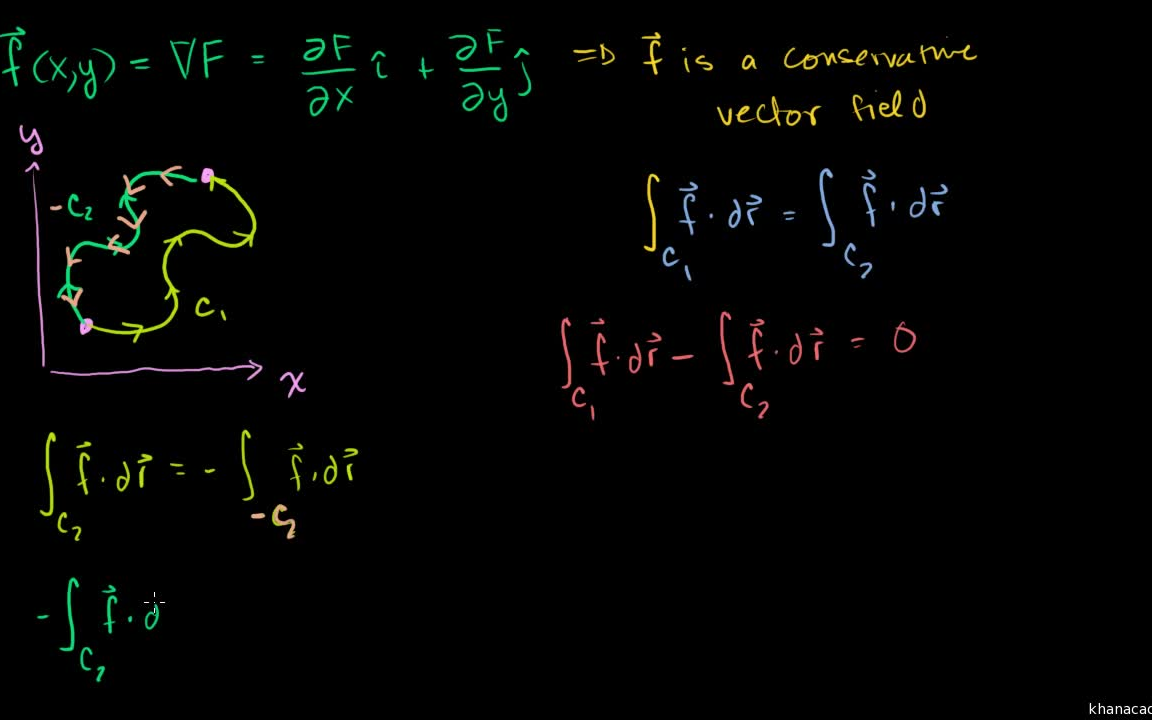 f⃗(x,y) = ∇F = ∂F/∂x î + ∂F/∂y ĵ ⇒ f⃗ is a conservative
vector field
y
-C₂
C₁
x
∫_C₁ f⃗·dr⃗ = ∫_C₂ f⃗·dr⃗
∫_C₁ f⃗·dr⃗ - ∫_C₂ f⃗·dr⃗ = 0
∫_C₂ f⃗·dr⃗ = - ∫_-C₂ f⃗·dr⃗
-∫_C₂ f⃗·d
khanacad